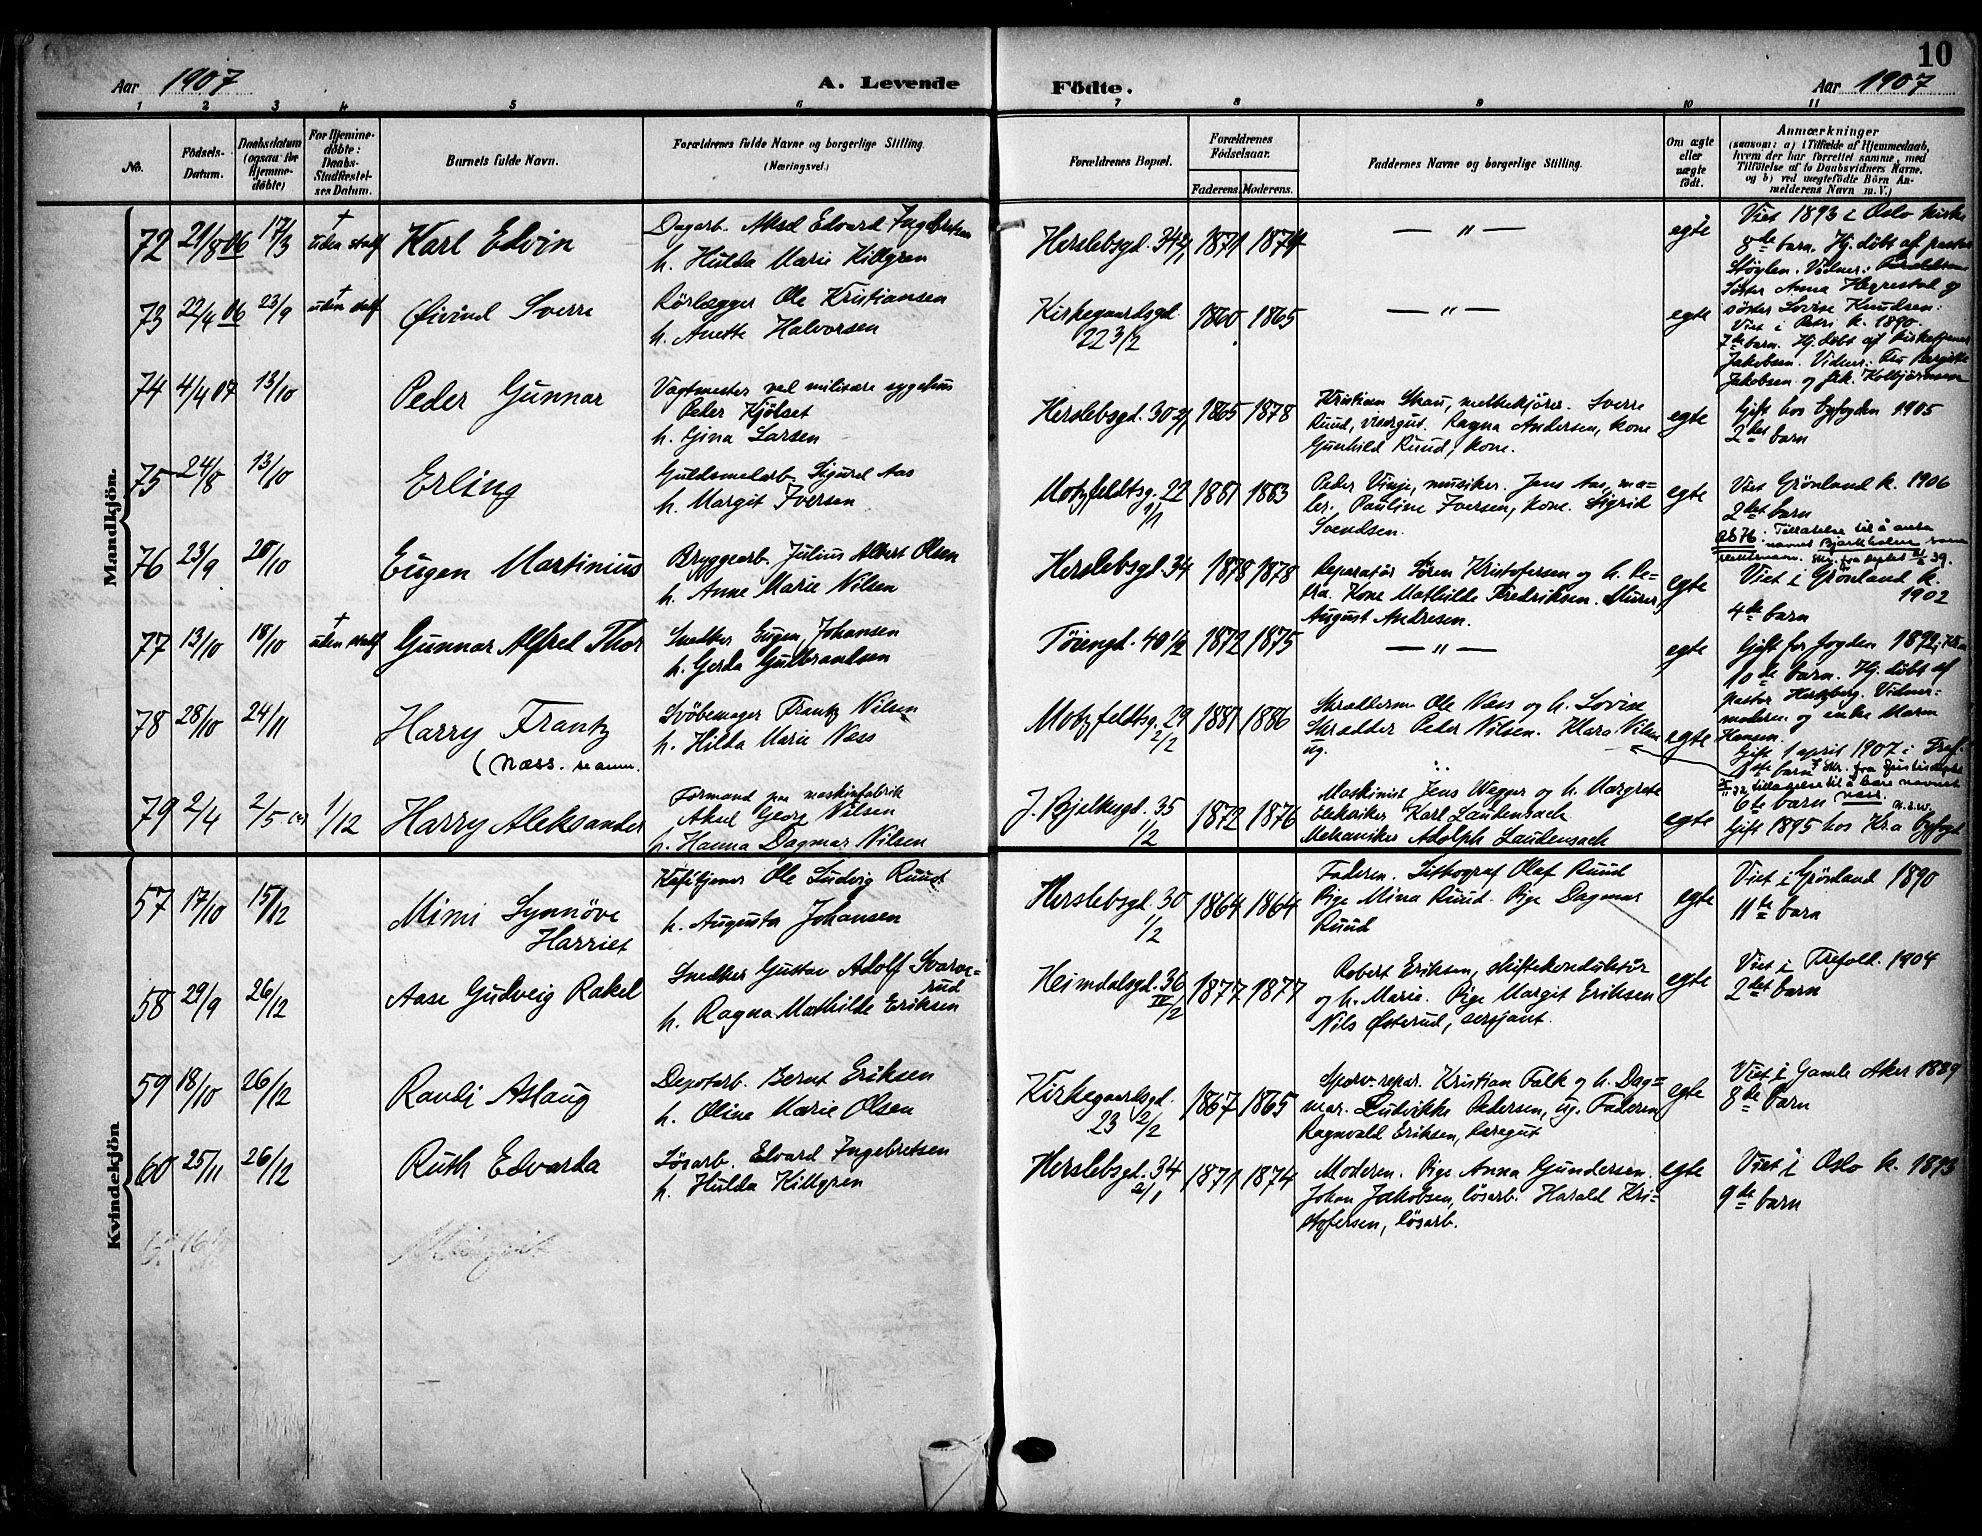 10
Aar 1907
A. Levende
Fødte.
Aar 1907
1 2 3 4 5 6 7 8 9 10 11
No.
Fødsels-
Datum.
Daabsdatum
(ogsaa for
Hjemme-
døbte)
For Hjemme-
døbte:
Daabs-
Stadfæstel-
ses Datum.
Barnets fulde Navn.
Forældrenes fulde Navne og borgerlige Stilling.
(Næringsvei.)
Forældrenes Bopæl.
Forældrenes
Fødselsaar.
Faderens. Moderens.
Faddernes Navne og borgerlige Stilling.
Om ægte
eller
uægte
født.
Anmærkninger
(saasom: a) i Tilfælde af Hjemmedaab,
hvem der har forrettet samme, med
Tilføielse af to Daabsvidners Navne,
og b) ved uægtefødte Børn An-
melderens Navn m. V.)
Mandkjøn.
72 21/8 06 17/3 † uden stadf Karl Edvin
Dagarb. Aksel Edvard Ingebretsen
h. Hulda Marie Killgren
Herslebsgd. 34 2/1 1871 1874 — " — egte
Viet 1893 i Oslo kirke
8de barn. Hj. døbt af pastor
Støylen. Vidner:
Søster Anna Hegrestad og
søster Lovise Knudsen.
73 22/4 06 23/9 † uden stadf Øivind Sverre
Rörlægger Ole Kristiansen
h. Anette Halvorsen
Kirkegaardsgd.
22 3/2 1860 1865 — " — egte
Viet i Petri k. 1890.
7de barn. Hj. døbt af kirketjener
Jakobsen. Vidner: Fru
Jakobsen og frk. Kolbjörnsen
74 4/4 07 13/10 Peder Gunnar
Vagtmester ved militære sygehus
Peder Kjölset
h. Gina Larsen
Herslebsgd. 30 2/1 1865 1878
Kristian Skau, melkekjører. Sverre
Ruud, visergut. Ragna Andersen, kone
Gunhild Ruud, kone.
egte
Gift hos byfogden 1905
2det barn
75 24/8 13/10 Erling
Guldsmedarb. Sigurd Aas
h. Margit Iversen
Motzfeldtsg. 22
1/1 1881 1883
Peder Vinje, musiker. Jens Aas, ma-
ler. Pauline Iversen, kone. Sigrid
Svendsen.
egte
Viet Grönland k. 1906
2det barn
76 23/9 20/10 Eugen Martinius
Bryggearb. Julius Albert Olsen
h. Anne Marie Nilsen
Herslebsgd. 34 1878 1878
Reparatör Sören Kristofersen og h. Pe-
tra. Kone Mathilde Fredriksen. Murer
August Andresen.
egte
ad 76. Tilladelse til å anta
navnet Bjerkholm som
slektsnavn.
Viet i Grönland k.
1902
4de barn
77 13/10 18/10 † uden stadf Gunnar Alfred Thor
Snedker Eugen Johansen
h. Gerda Gulbrandsen
Töiengd. 40 1/2 1872 1875 — " — egte
Gift for fogden 1892
10de barn. Hj. døbt af
pastor Hertzberg. Vidner:
moderen og enke Maren
Hansen.
78 28/10 24/11 Harry Frantz
(Næss.
Støbemager Frantz Nilsen
h. Hilda Marie Næss
Motzfeldtsg. 29
2/2 1881 1886
Skrædderm Ole Næss og h. Lovise
Skrædder Peder Nilsen. Klara Nilsen
ug.
egte
Gift 1 april 1907 i Tref.
1ste barn
tilladelse til å bære navnet
Næss.
79 2/4 2/5 1/12 Harry Aleksander
Formand paa maskinfabrik
Aksel Georg Nilsen
h. Hanna Dagmar Nilsen
J. Bjelkesgd. 35
1/2 1872 1876
Maskinist Jens Wagner og h. Margrete
Elektriker Karl Laudensach
Mekaniker Adolph Laudensach
egte
6te barn
Gift 1895 hos Kr.a byfogd
Kvindekjøn
57 17/10 15/12 Mimi Synnöve
Harriet
Kafétjener Ole Ludvig Ruud
h. Augusta Johansen
Herslebsgd. 30
1/2 1864 1864
Faderen. Lithograf Olaf Ruud
Pige Mina Ruud. Pige Dagmar
Ruud
egte
Viet i Grönland 1890
11te barn
58 29/9 26/12 Aase Gudveig Rakel
Snedker Gustav Adolf Svarve-
rud
h. Ragna Mathilde Eriksen
Heimdalsgd. 36
IV/2 1877 1877
Robert Eriksen, skiftekonduktör
og h. Marie. Pige Margit Eriksen
Nils Østerud, sersjant.
egte
Viet i Trefold. 1904
2det barn
59 18/10 26/12 Randi Aslaug
Depotarb. Bernt Eriksen
h. Oline Marie Olsen
Kirkegaardsgd.
23 2/2 1867 1865
Sporv. repar. Kristian Falk og h. Dag-
mar. Ludvikke Pedersen, ug. Faderen
Ragnvald Eriksen, læregut
egte
Viet i Gamle Aker 1889
8de barn
60 25/11 26/12 Ruth Edvarda
Lösarb. Edvard Ingebretsen
h. Hulda Killgren
Herslebsgd. 34
2/1 1871 1874
Moderen. Pige Anna Gundersen
Johan Jakobsen, lösarb. Harald Kri-
stofersen, lösarb.
egte
Viet i Oslo k. 1893
9de barn